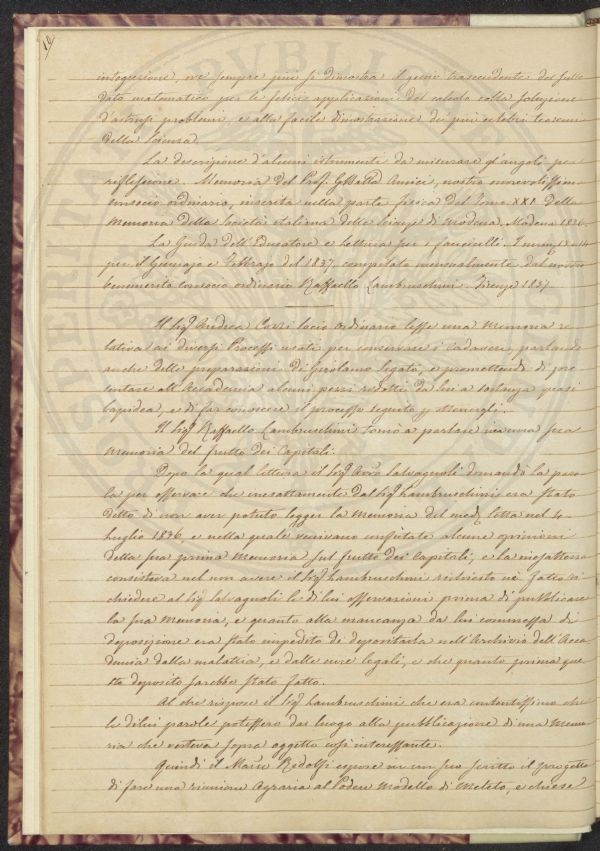 16
integrazione, ove sempre più si dimostra il genio trascendente del sullo
dato matematico per le felici applicazioni del calcolo colla soluzione
d'astrusi problemi, e alla facile dimostrazione dei più celebri teoremi
della scienza.
La descrizione d'alcuni istrumenti da misurare gl'angoli per
riflessione. Memoria del Prof. Gio Batta Amici, nostro onorevolissimo
socio ordinario, inserita nella parte fisica del Tomo XXI della
Memoria della Società italiana delle scienze di Modena. Modena 1836.
La Guida dell'Educatore e Letture per i fanciulli. I num. 13 e 14
per il Gennajo e Febbrajo del 1837, compilata mensualmente dal nostro
benemerito consocio ordinario Raffaello Lambruschini. Firenze 1837.
Il Sig. Andrea Cozzi socio ordinario lesse una Memoria re-
lativa ai diversi Processi usati per conservare i cadaveri, parlando
anche delle preparazioni di Girolamo Segato, e promettendo di pre-
sentare all'Accademia alcuni pezzi ridotti da lui a sostanza quasi
lapidea, e di far conoscere il processo seguito p. ottenergli.
Il Sig. Raffaello Lambruschini tornò a parlare in una sua
Memoria del frutto dei Capitali.
Dopo la qual lettura il Sig. Avv. Salvagnoli domandò la paro
la per osservare che inesattamente dal Sig. Lambruschini era stato
detto di non aver potuto legger la Memoria del med. letta nel 4
Luglio 1836, e nella quale venivano confutate alcune opinioni
della sua prima Memoria sul frutto dei Capitali; e la inesattezza
consisteva nel non avere il Sig. Lambruschini richiesto nè fatto ri
chiedere al Sig. Salvagnoli le di lui osservazioni prima di pubblicare
la sua Memoria, e quanto alla mancanza da lui commessa di
deposizione era stato impedito di depositarla nell'Archivio dell'Acca
demia dalla malattia, e dalle cure legali, e che quanto prima que
sto deposito sarebbe stato fatto.
Al che rispose il Sig. Lambruschini che era contentissimo che
le di lui parole potessero dar luogo alla pubblicazione di una Memo
ria che verteva sopra oggetto così interessante.
Quindi il March. Ridolfi espose in un suo scritto il progetto
di fare una riunione Agraria al Podere Modello di Meleto, e chiese